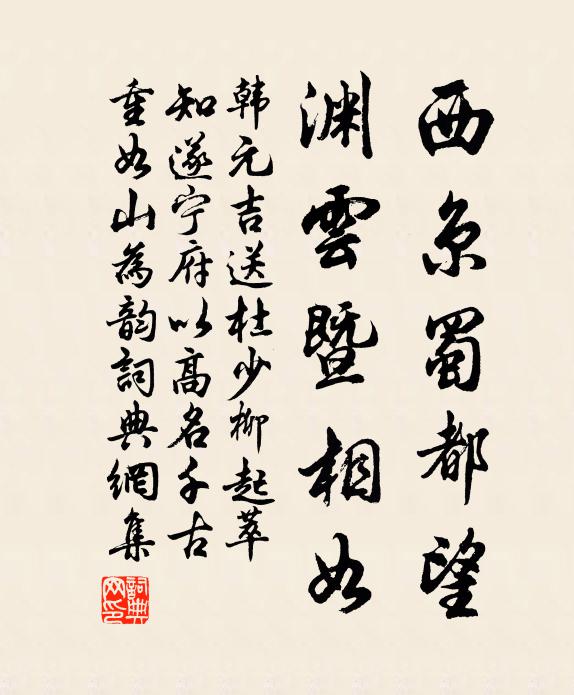 西京蜀都望
渊雲暨相如
韩元吉送杜少柳起莘
知遂宁府以高名千古
重如山為韵詞典網集
詞典网印